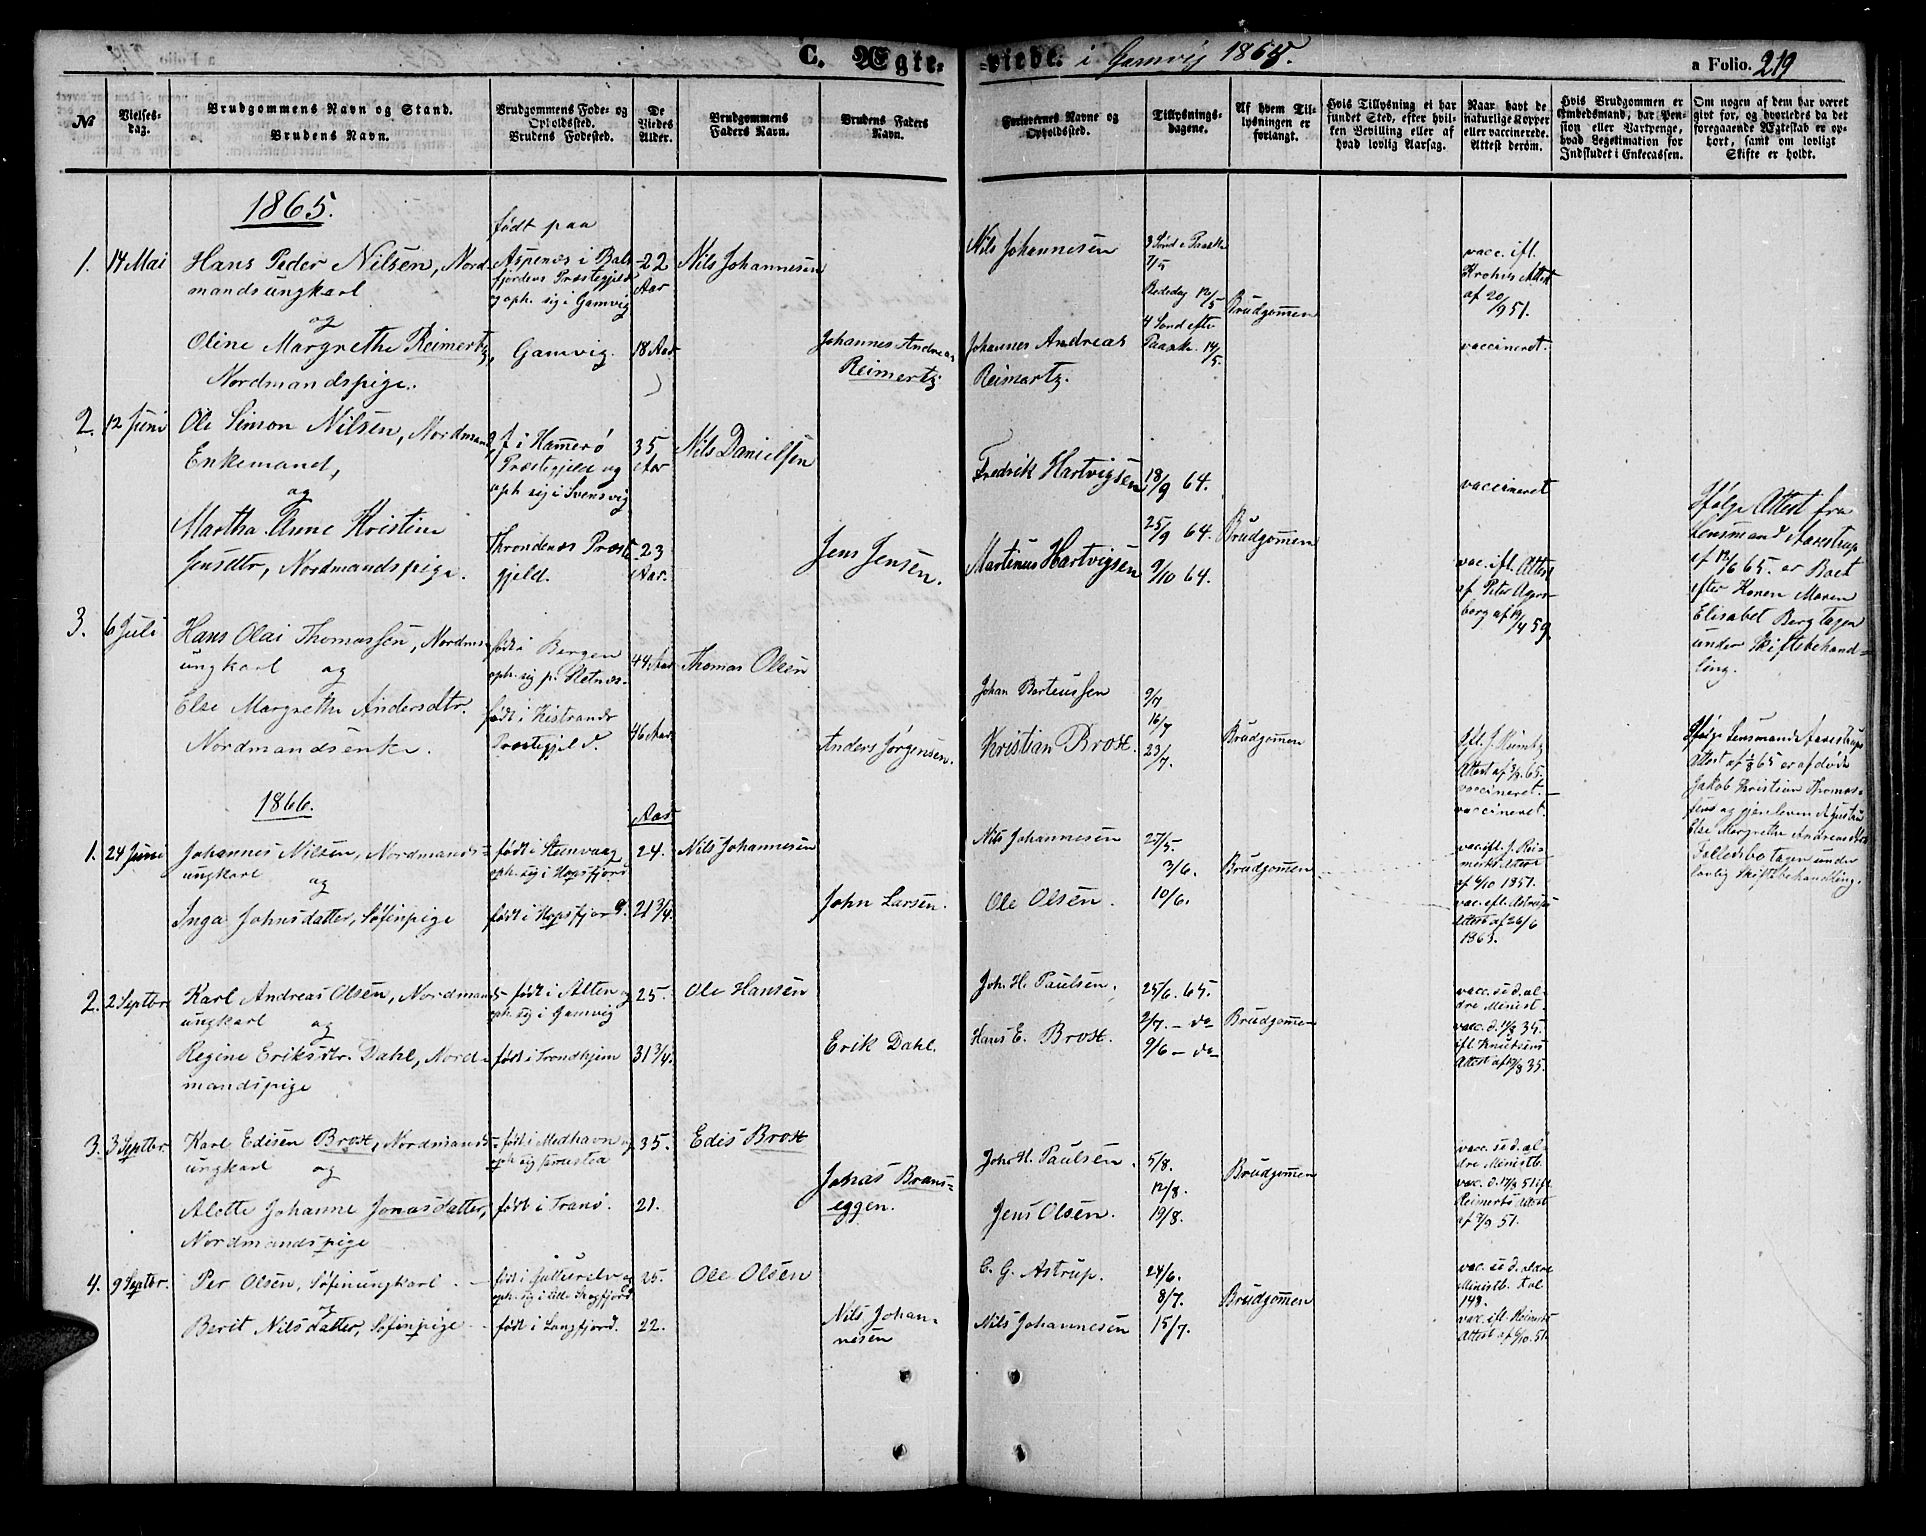 C. Ægteviede. i Gamvig 1865.
a Folio. 219
No
Vielsesdag.
Brudgommens Navn og Stand.
Brudens Navn.
Brudgommens Fode- og
Opholdssted.
Brudens Fodested.
De
Viedes
Alder.
Brudgommens
Faders Navn.
Brudens Faders
Navn.
Forlovernes Navne og
Opholdssted.
Tillysnings-
dagene.
Af hvem Til-
lysningen er
forlangt.
Hvis Tillysning ei har
fundet Sted, efter hvil-
ken Bevilling eller af
hvad lovlig Aarsag.
Naar havt de
naturlige Kopper
eller vaccinerede.
Attest derom.
Hvis Brudgommen er
Embedsmand, har Pen-
sion eller Vartpenge,
hvad Legitimation for
Indskudet i Enkecassen.
Om nogen af dem har været
givt for, og hvorledes da det
foregaaende Ægteskab er op-
hort, samt om lovligt
Skifte er holdt.
1865.
1. 14 Mai
Hans Peder Nilsen, Nord-
mandsungkarl
og
Oline Margrethe Reimertz,
Nordmandspige.
født paa
Aspenæs i Bals
fjordens Præstegjeld
og oph. sig i Gamvig
Gamvig.
22
Aar
18 Aar
Nils Johannesen
Johannes Andreas
Reimertz
Nils Johannesen
Johannes Andreas
Reimartz.
3 Sønd e Paaske
7/5
Bededag 12/5
4 Sønd efter
Paaske. 14/5.
Brudgommen
vacc. ifl.
Krohns Attest
af 20/9 51.
vaccineret.
2. 12 Juni
Ole Simon Nilsen, Nordmand,
Enkemand,
og
Martha Anne Kristine
Jensdtr, Nordmandspige.
f. i Hamerø
Præstegjeld og
oph sig i Svensvig
Throndenæs Præste
gjeld.
35
Aar
23
Aar.
Nils Danielsen
Jens Jensen.
Fredrik Hartvigsen
Martinus Hartvigsen
18/9 64.
25/9 64.
9/10 64.
Brudgommen
vaccineret
vac. ifl. Attest
af Peter Agers
borg af 12/4 59.
Ifølge Attest fra
Lensmand Aarestrup
af 12/6 65. er Boet
efter Konen Maren
Elisabet Berg tagen
under Skiftebehand=
ling.
3. 6 Juli
Hans Olai Thomassen, Nordms
ungkarl og
Else Margrethe Andersdtr.
Nordmandsenke.
født i Bergen
oph. sig p. Sletnæs.
født i Kistrands
Præstegjeld.
44 Aar
46 Aar.
Thomas Olsen
Anders Jørgensen.
Johan Berteussen
Kristian Brox.
9/7
16/7
23/7.
Brudgommen
vaccineret.
vaccineret.
Jakob Kristian Thomas-
Else Margrethe
Fællesbo tagen under
lovlig Skiftebehandling.
1866.
1. 24 Juni
Johannes Nilsen, Nordmands-
ungkarl
og
Inga Johnsdatter, Søfinpige
født i Stenvaag
oph. sig i Hopsfjord
født i Hopsfjord.
Aar
24.
21 3/4.
Nils Johannesen
John Larsen.
Nils Johannesen
Ole Olsen.
27/5.
3/6.
10/6.
Brudgommen
vac. ifl. J. Rei
merts Attest
af 6/10 1851.
vac. ifl. Astrups
Attest af 26/6
1863.
2. 2 Septbr.
Karl Andreas Olsen, Nordmands
ungkarl og
Regine Eriksdtr. Dahl, Nord-
mandspige
født i Alten og
oph. sig i Gamvig
født i Trondhjem
25.
31 3/4.
Ole Hansen
Erik Dahl.
Joh. H. Paulsen.
Hans E. Brox.
25/6. 65.
2/7. – do
9/6 – do
Brudgommen
vacc. se d. al-
dre Minist.
vac. d. 1/8 35.
ifl. Knudsens
Attest af 13/8 35.
3. 3 Septbr.
Karl Edisen Brox, Nordmands-
ungkarl og
Alette Johanne Jonasdatter,
Nordmandspige
født i Medhavn og
født i Tranø.
35.
21.
Edis Brox
Jonas Brans=
eggen.
Joh. H. Paulsen.
Jens Olsen.
5/8.
12/8.
19/8.
Brudgommen
vacc. se d. al
dre Ministb.
vac. d. 17/9 51 ifl.
Reimerts Attest
af 7/9 51.
4. 9 Septbr.
Per Olsen, Søfinungkarl.
og
Berit Nilsdatter, Søfinpige
oph. sig i Lille
født i Langfjord.
25.
22.
Ole Olsen
Nils Johan-
nesen
C. G. Astrup.
Nils Johannesen
24/6.
8/7.
15/7.
Brudgommen
vac. se d.
Ministb. Fol
148.
vac. ifl. Reimerts
Attest af 6/10. 51.